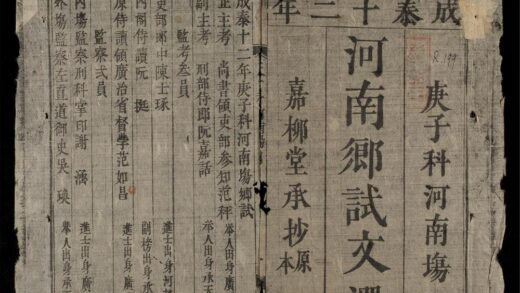 成泰十二年
庚子科河南塲
河南鄉試文選
嘉柳堂承抄原本
成泰十二年庚子科河南塲鄉試
正主考 尚書領吏部參知范秤 舉人出身廣
副主考 刑部侍郎阮嘉話 舉人出身承
監考叁員
吏部郎中陳士琢 進士出身河
內閣侍讀阮 挺 副榜出身承
原侍讀領廣治省督學范如昌 進士出身廣
監察弍員
內塲監察刑科掌印謝 涵 進士出身廣
外塲監察左直道御史吳 瑛 舉人出身承